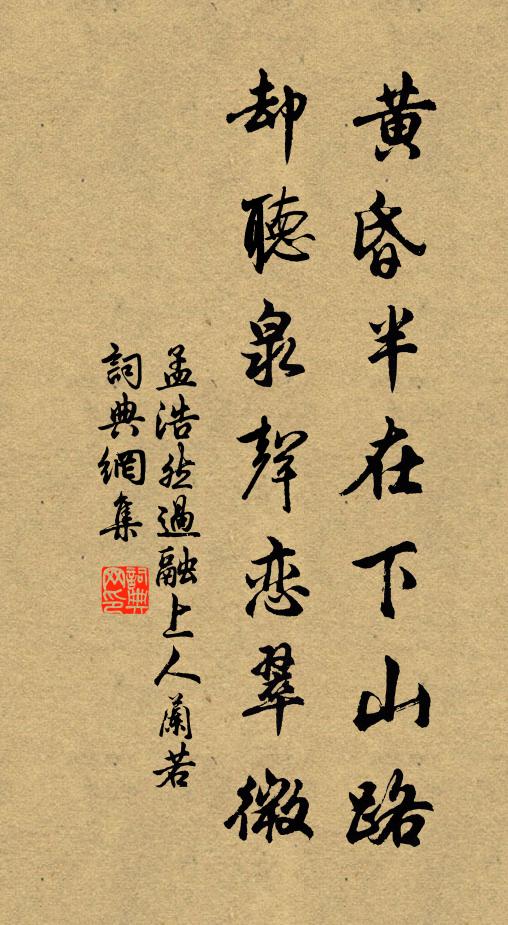 黄昏半在下山路
却聴泉聲恋翠微
孟浩然過融上人蘭若
詞典網集
詞典网印